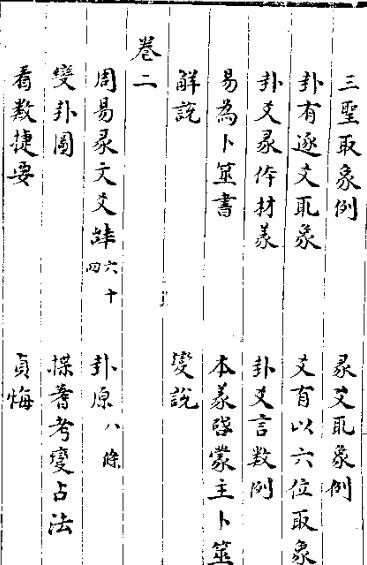 三聖取象例　彖爻取象例
卦有逐爻取象　爻有以六位取象
卦爻彖体材義　卦爻言数例
易為卜筮書　本義啓蒙主卜筮
解說　變說
卷二
周易彖文爻辞六十四　卦原八條
變卦圖　揲蓍考變占法
看數捷要　貞悔